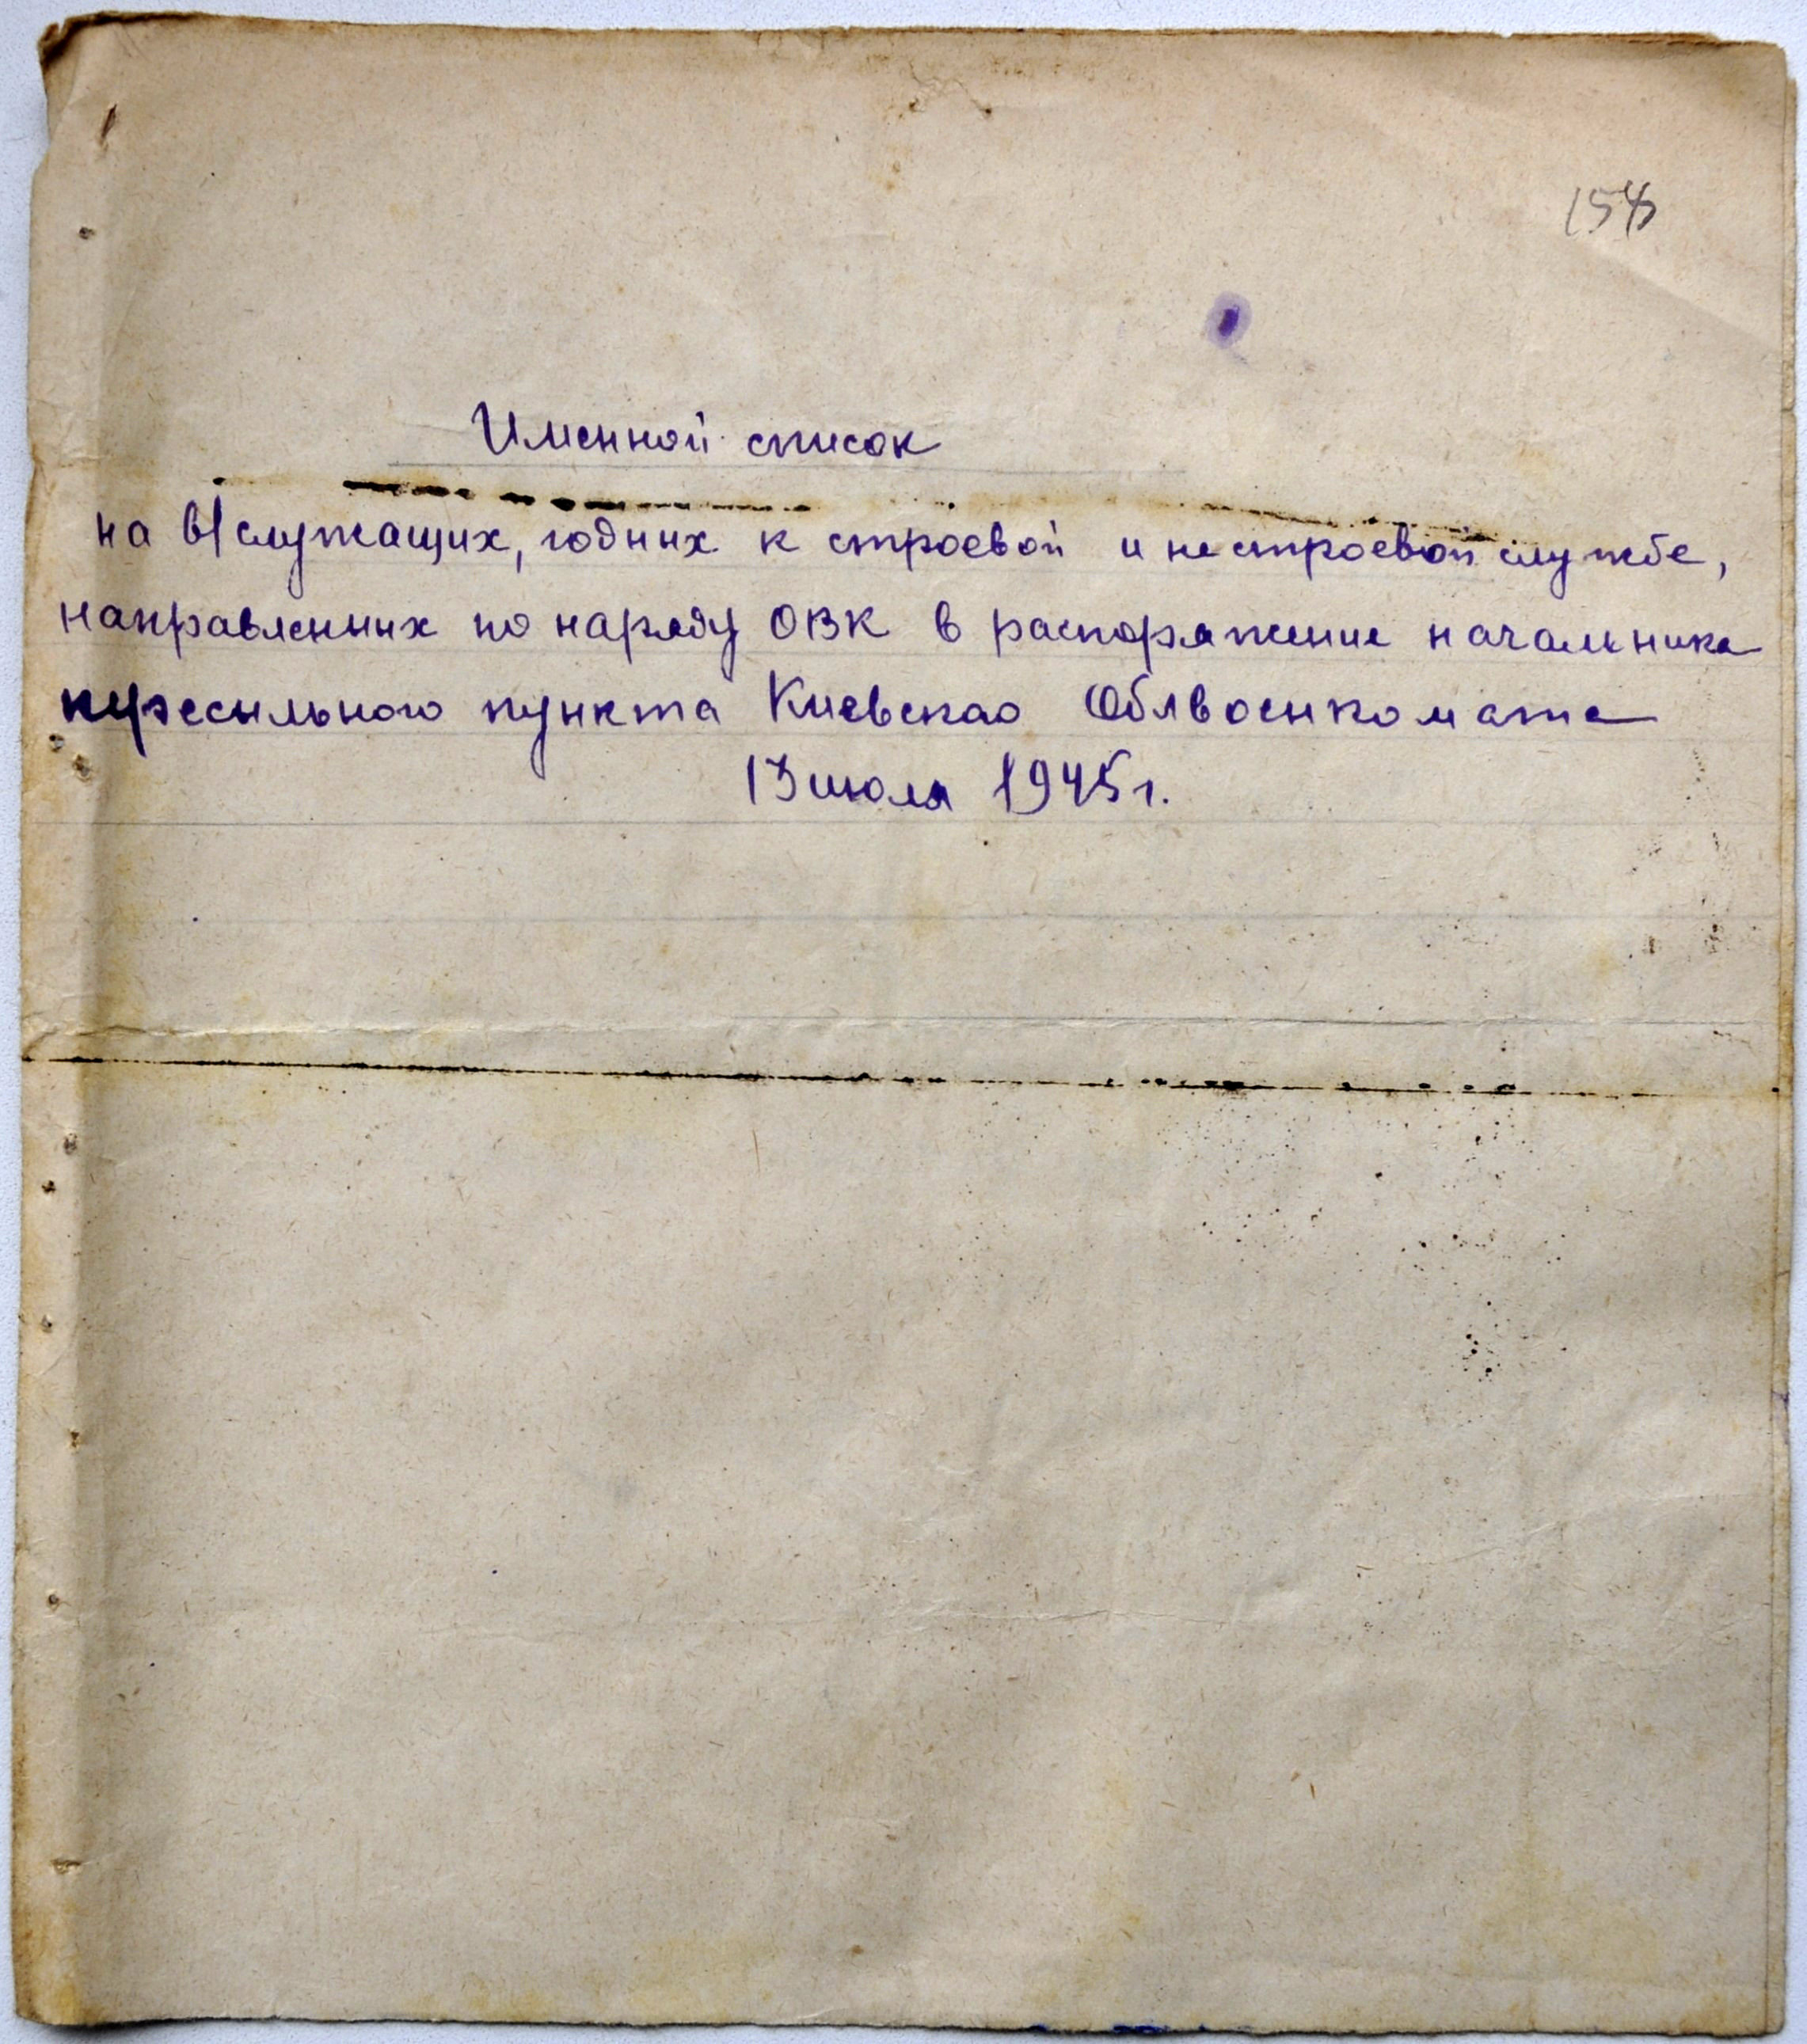 Именной список
на в/служащих, годных к строевой и нестроевой службе,
направленных по наряду ОВК в распоряжение начальника
пересыльного пункта Киевского Облвоенкомата
13 июля 1945 г.